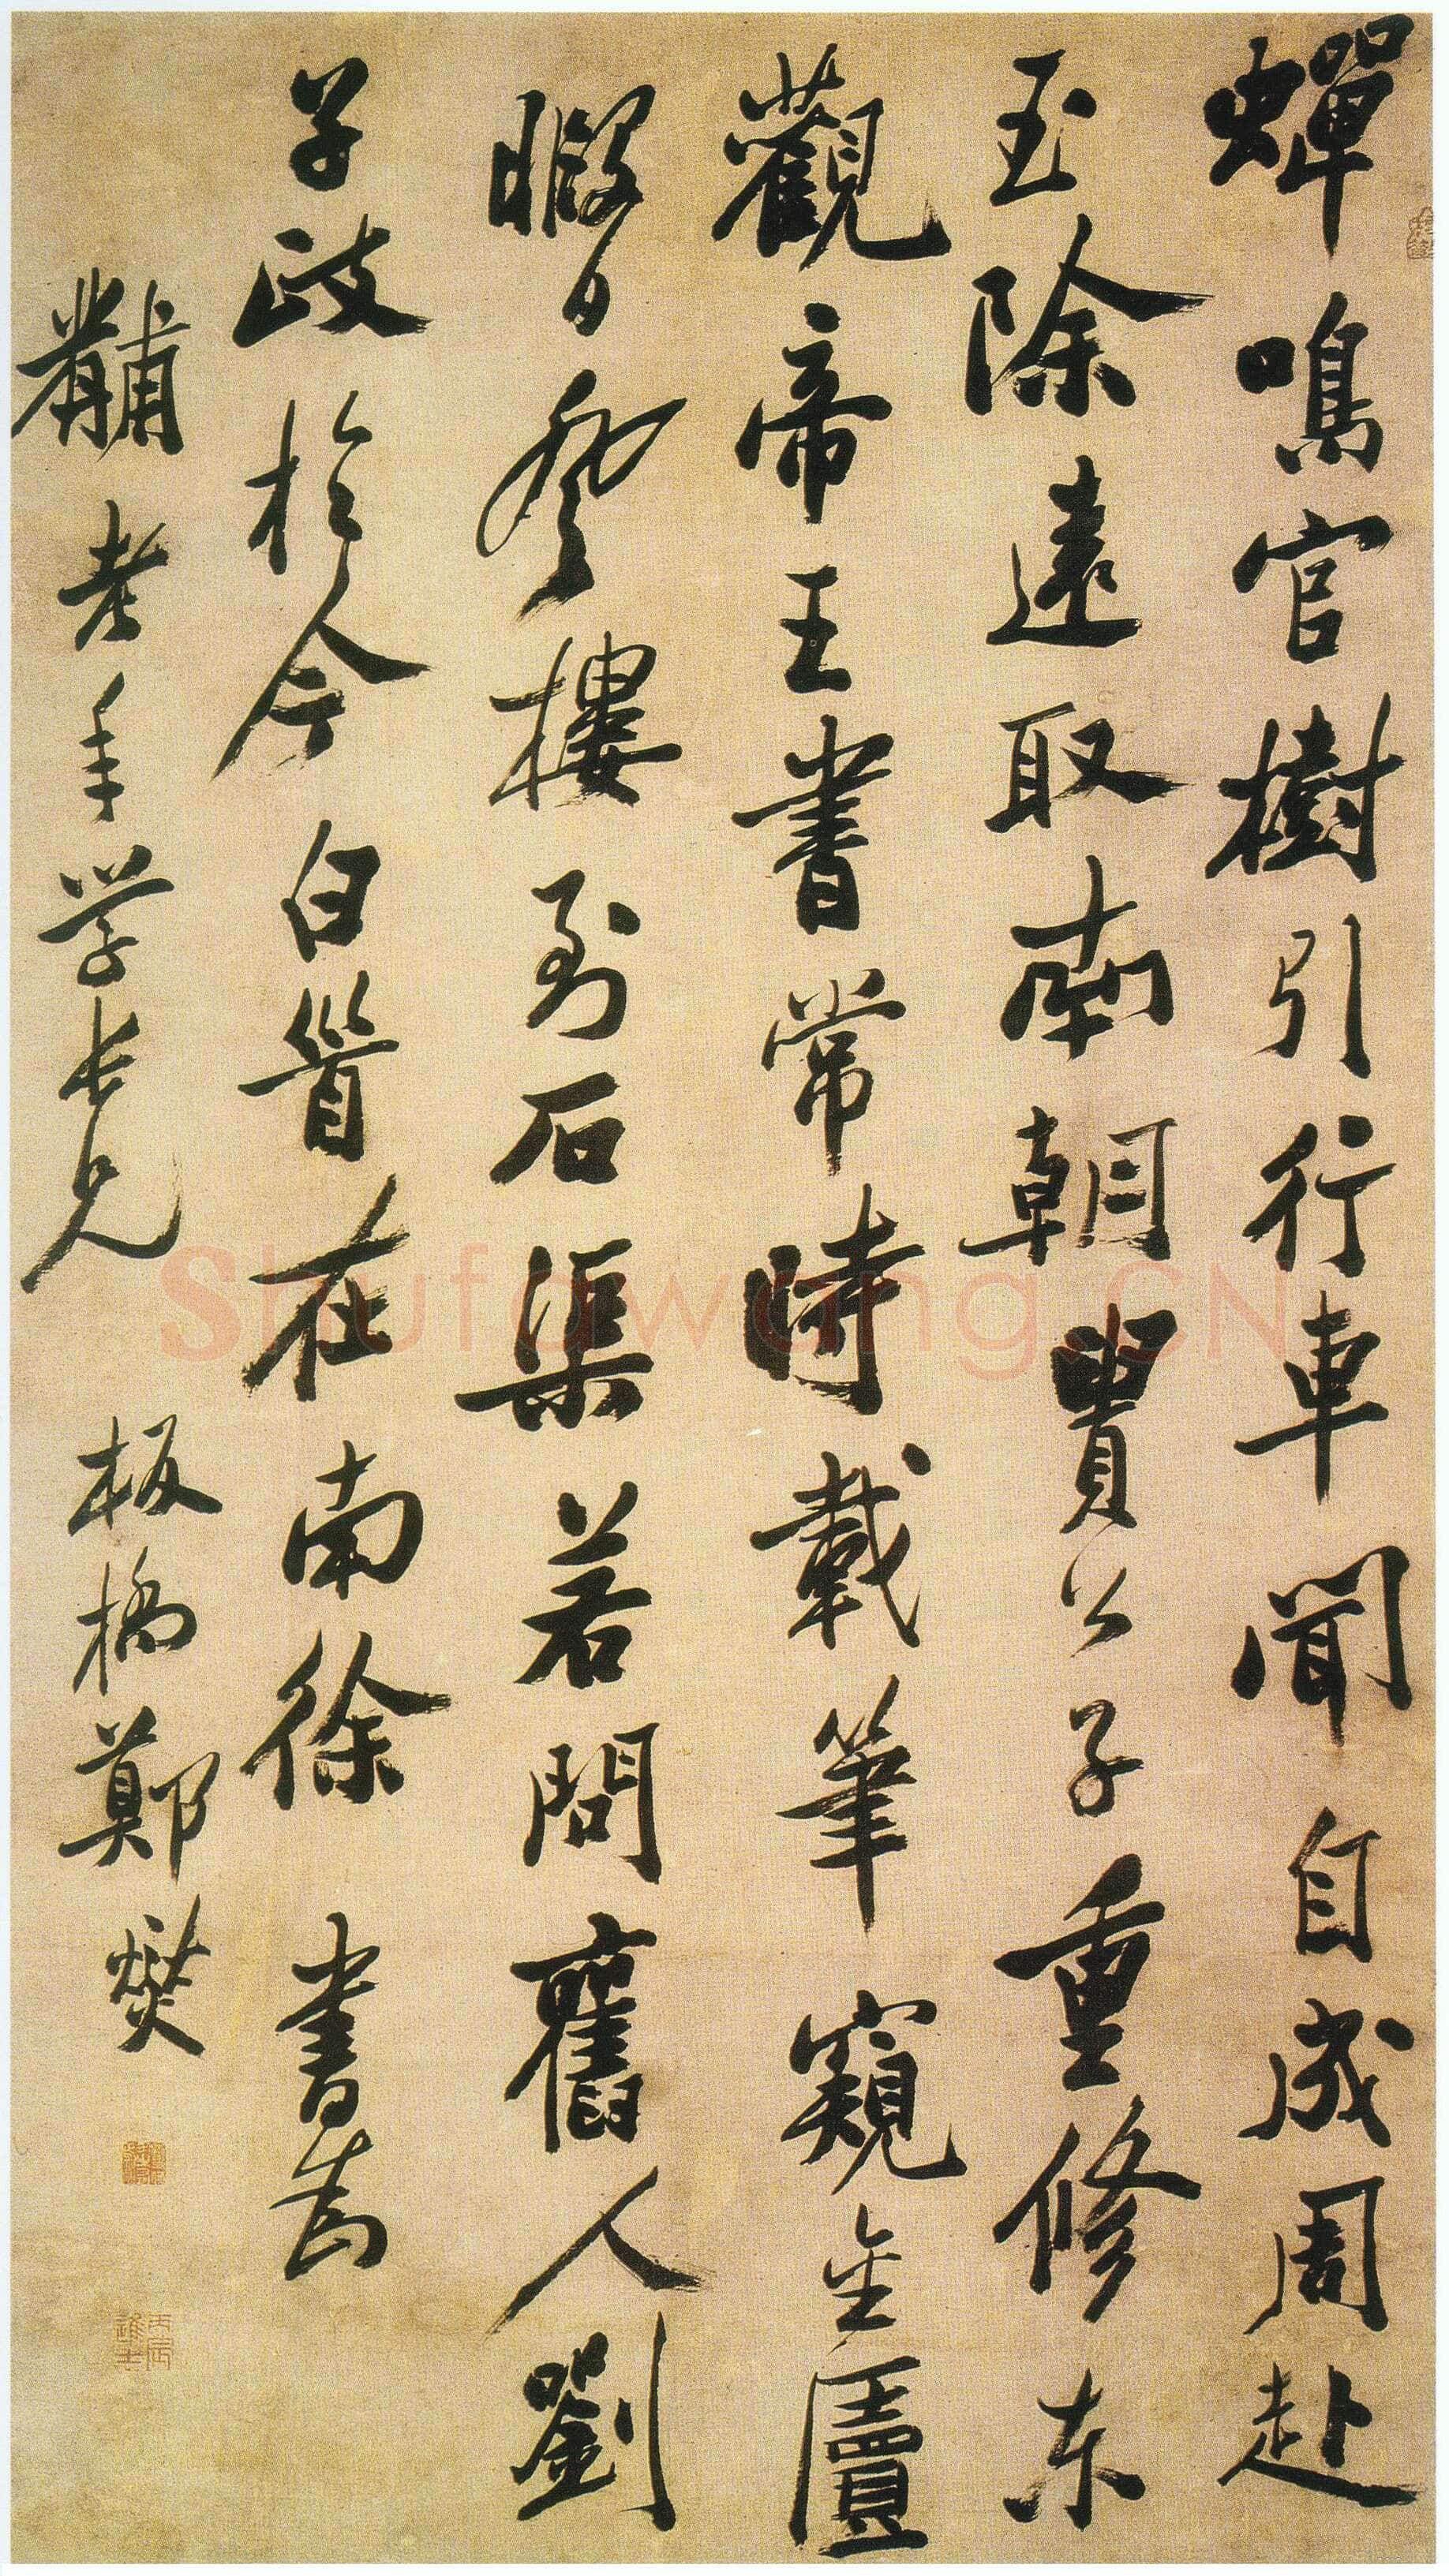 蟬鳴官樹引行車聞自成周赴
玉除遠取南朝貴公子重修東
觀帝王書常時載筆窺金匱
暇日登樓到石渠若問舊人劉
子政於今白首在南徐 書為
黼老年學長兄 板橋鄭燮
丙辰進士
Shufawang.CN